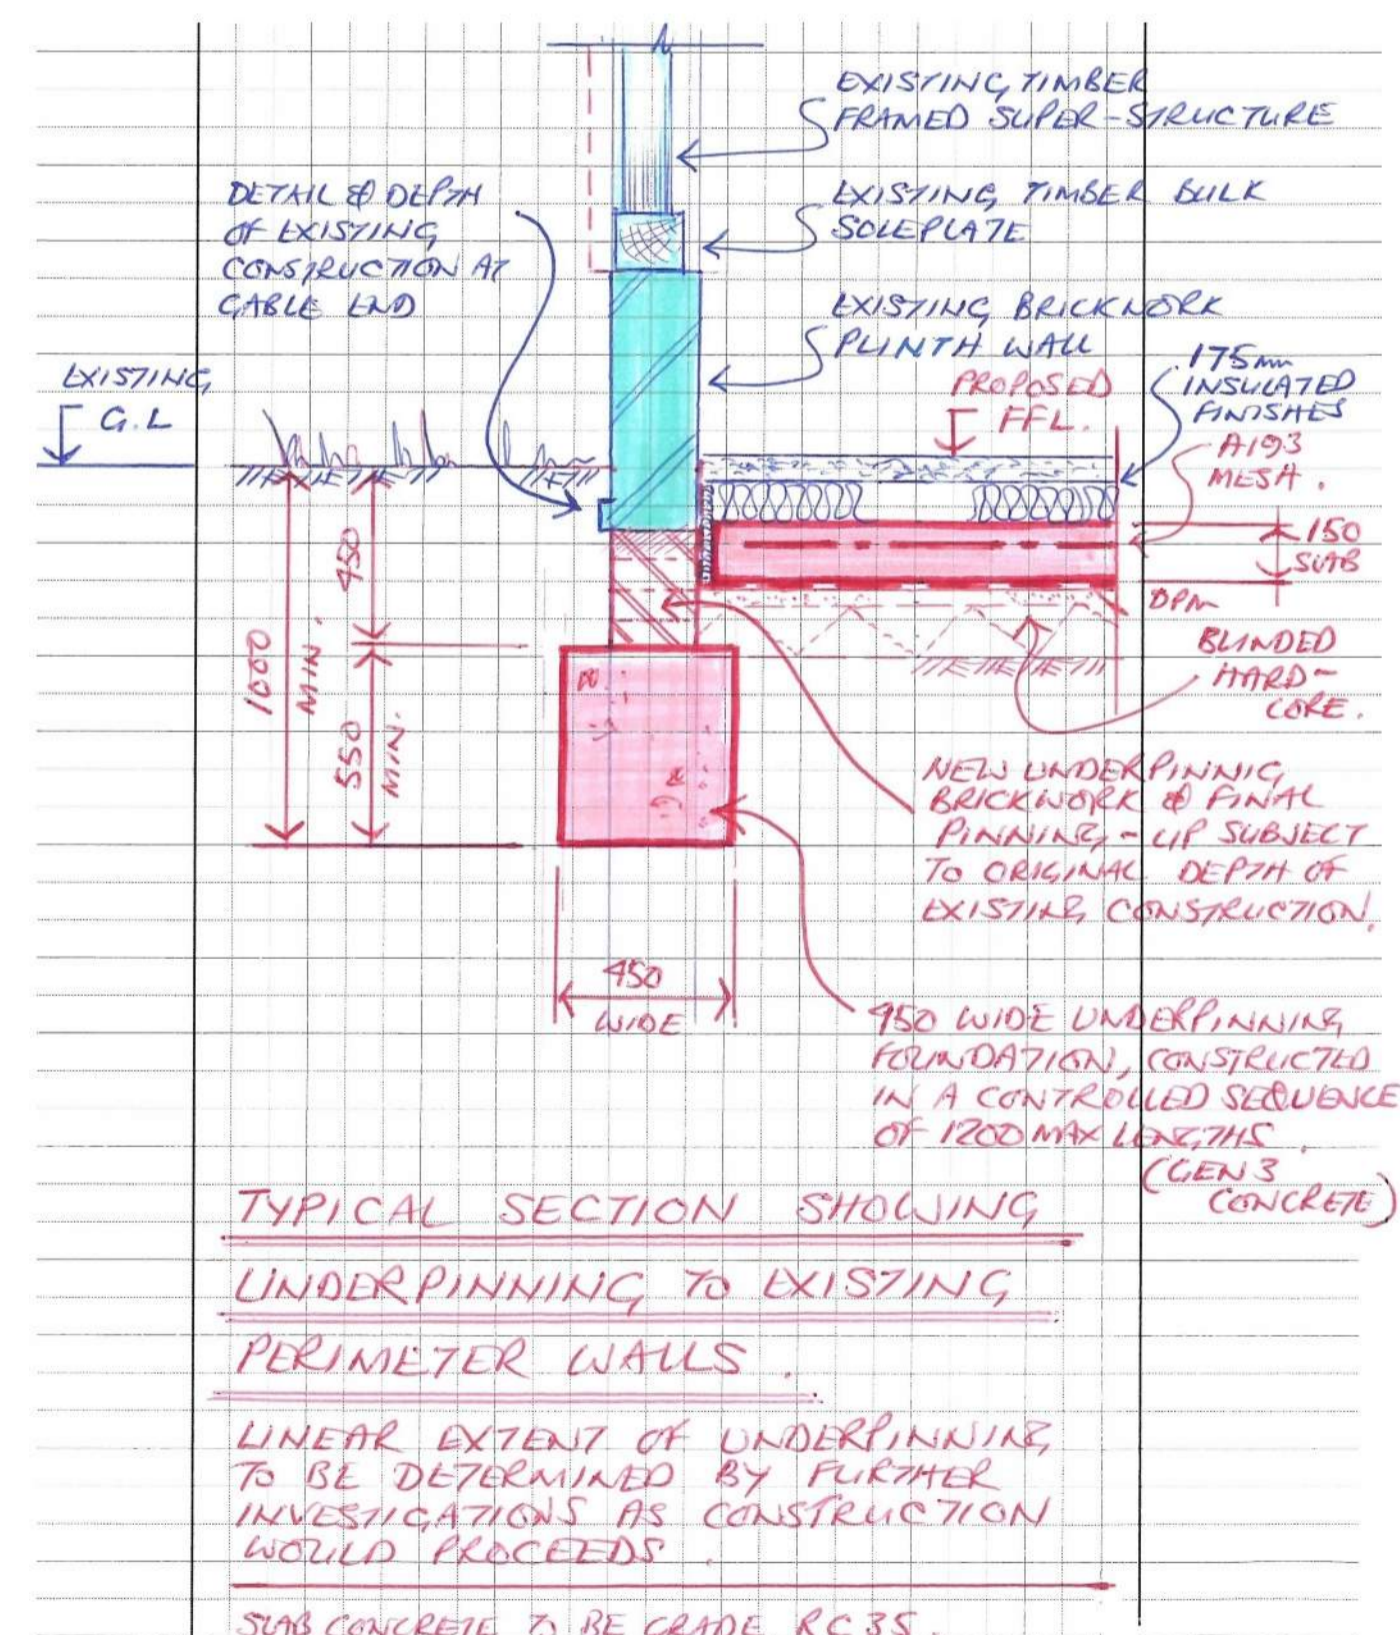 EXISTING TIMBER
FRAMED SUPER-STRUCTURE
DETAIL & DEPTH
OF EXISTING
CONSTRUCTION AT
GABLE END
EXISTING TIMBER BULK
SOLEPLATE
EXISTING BRICKWORK
PLINTH WALL
EXISTING
G.L
PROPOSED
FFL.
175mm
INSULATED
FINISHES
A193
MESH.
150
SLAB
DPM
BLINDED
HARD-
CORE.
450
1000
MIN.
550
MIN.
NEW UNDERPINNIG
BRICKWORK & FINAL
PINNING-UP SUBJECT
TO ORIGINAL DEPTH OF
EXISTING CONSTRUCTION.
450
WIDE
450 WIDE UNDERPINNING
FOUNDATION, CONSTRUCTED
IN A CONTROLLED SEQUENCE
OF 1200 MAX LENGTHS.
(GEN 3
CONCRETE)
TYPICAL SECTION SHOWING
UNDERPINNING TO EXISTING
PERIMETER WALLS.
LINEAR EXTENT OF UNDERPINNING
TO BE DETERMINED BY FURTHER
INVESTIGATIONS AS CONSTRUCTION
WOULD PROCEEDS.
SLAB CONCRETE TO BE GRADE RC35.